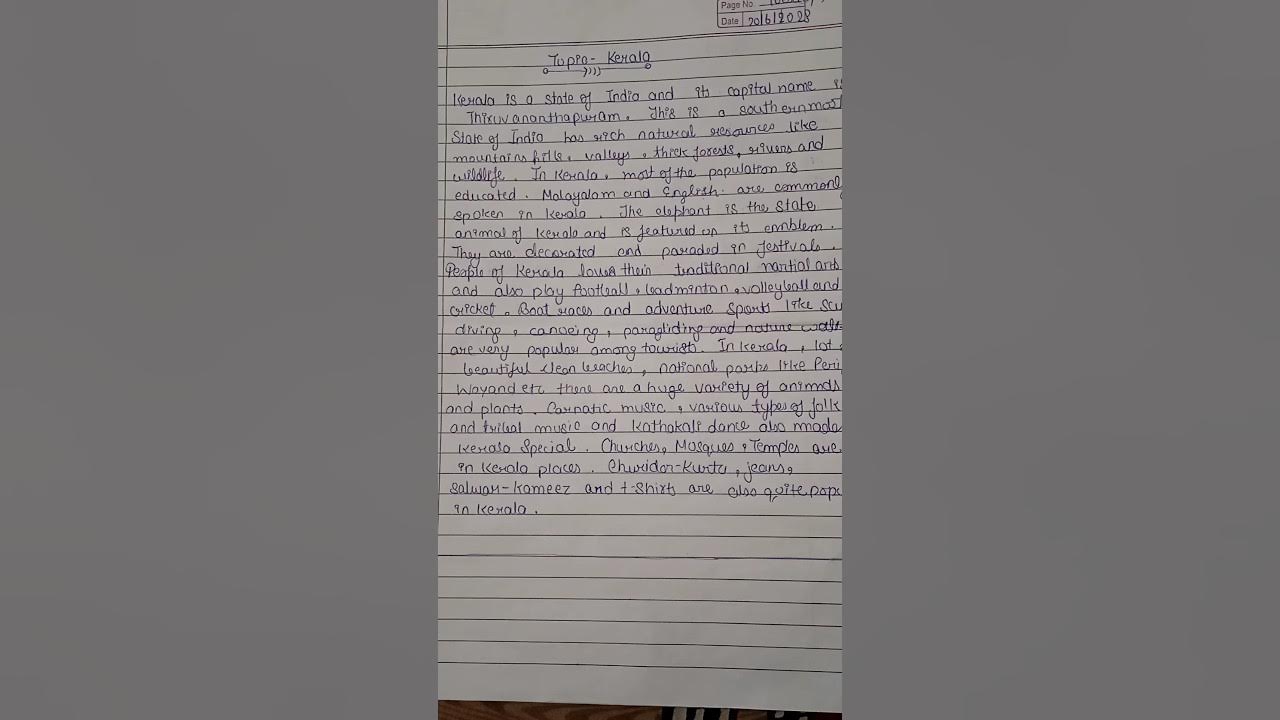 Page No.
Date 20/6/2023
Topic- Kerala
Kerala is a state of India and its capital name is
Thiruvananthapuram. This is a southernmost
State of India has rich natural resources like
mountains hills, valleys, thick forests, rivers and
wildlife. In Kerala, most of the population is
educated. Malayalam and English are commonl
spoken in Kerala. The elephant is the state
animal of Kerala and is featured on its emblem.
They are decorated and paraded in festivals.
People of Kerala loves their traditional martial arts
and also play football, badminton, volleyball and
cricket. Boat races and adventure sports like scu
diving, canoeing, paragliding and nature walk
are very popular among tourists. In Kerala, lot
beautiful clean beaches, national parks like Peri
Wayand etc there are a huge variety of animals
and plants. Carnatic music, various types of folk
and tribal music and Kathakali dance also made
Kerala Special. Churches, Mosques, Temples are
in Kerala places. Churidar-Kurta, jeans,
Salwar-Kameez and t-shirts are also quite popu
in Kerala.